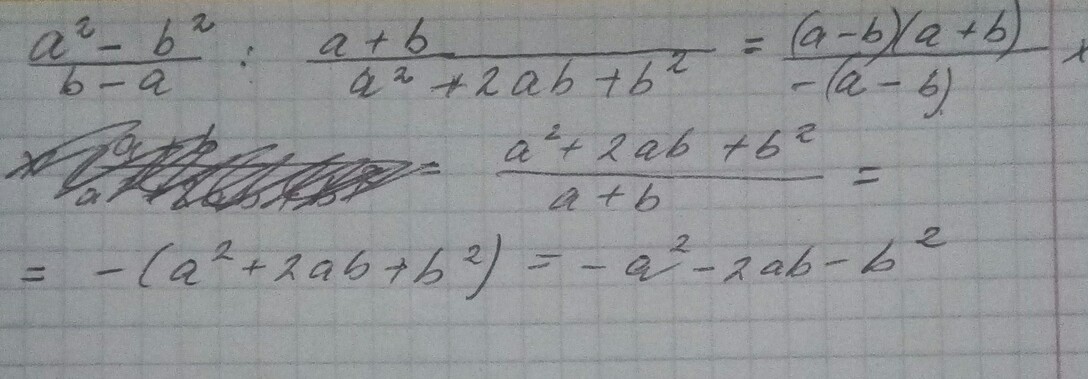 (a² - b²)/(b - a) : (a + b)/(a² + 2ab + b²) = ((a - b)(a + b))/(-(a - b)) ×
× = (a² + 2ab + b²)/(a + b) =
= - (a² + 2ab + b²) = - a² - 2ab - b²